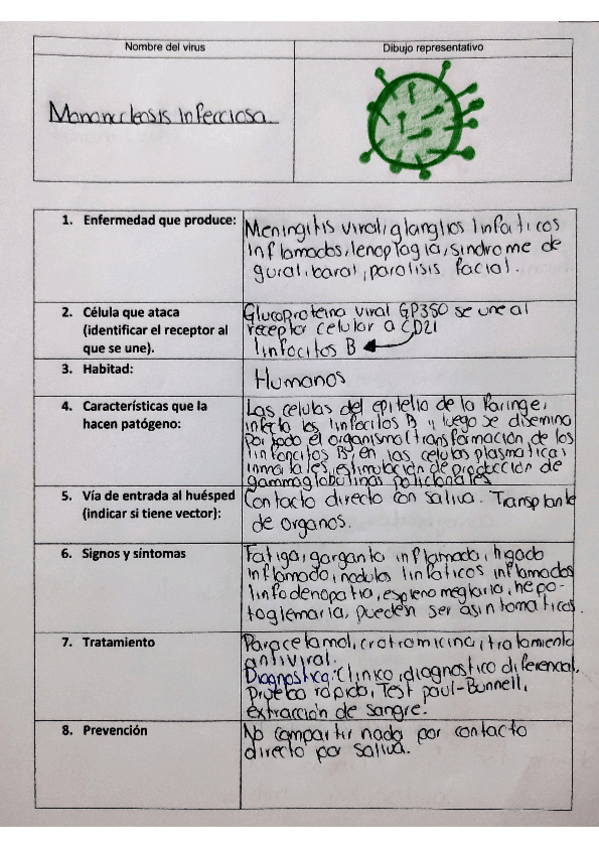 Nombre del virus
Dibujo representativo
Mononucleosis Infecciosa
1. Enfermedad que produce:
Meningitis viral, glanglios linfaticos
inflamados, lenoplagia, sindrome de
gural, baral, paralisis facial.
2. Célula que ataca
(identificar el receptor al
que se une).
Glucoproteina viral GP350 se une al
receptor celular a CD21
linfocitos B
3. Habitad:
Humanos
4. Características que la
hacen patógeno:
Las celulas del epitelio de la faringe,
infecta los linfocitos B y luego se disemina
por todo el organismo (transformación de los
linfoncitos B, en las celulas plasmaticas
inmortales, estimulación de producción de
gammaglobulinas policlonales
5. Vía de entrada al huésped
(indicar si tiene vector):
Contacto directo con saliva. Transplante
de organos.
6. Signos y síntomas
Fatiga, garganta inflamada, higado
inflamado, nodulos linfaticos inflamados
linfodenopatia, espleno meglaria, hepa-
toglemaria, pueden ser asintomaticas.
7. Tratamiento
Paracetamol, crotromicina, tratamiento
antiviral.
Diagnostico: Clinico, diagnostico diferencial,
Prueba rapida, Test paul-Bunnell,
extracción de sangre.
8. Prevención
No compartir nada por contacto
directo por saliva.